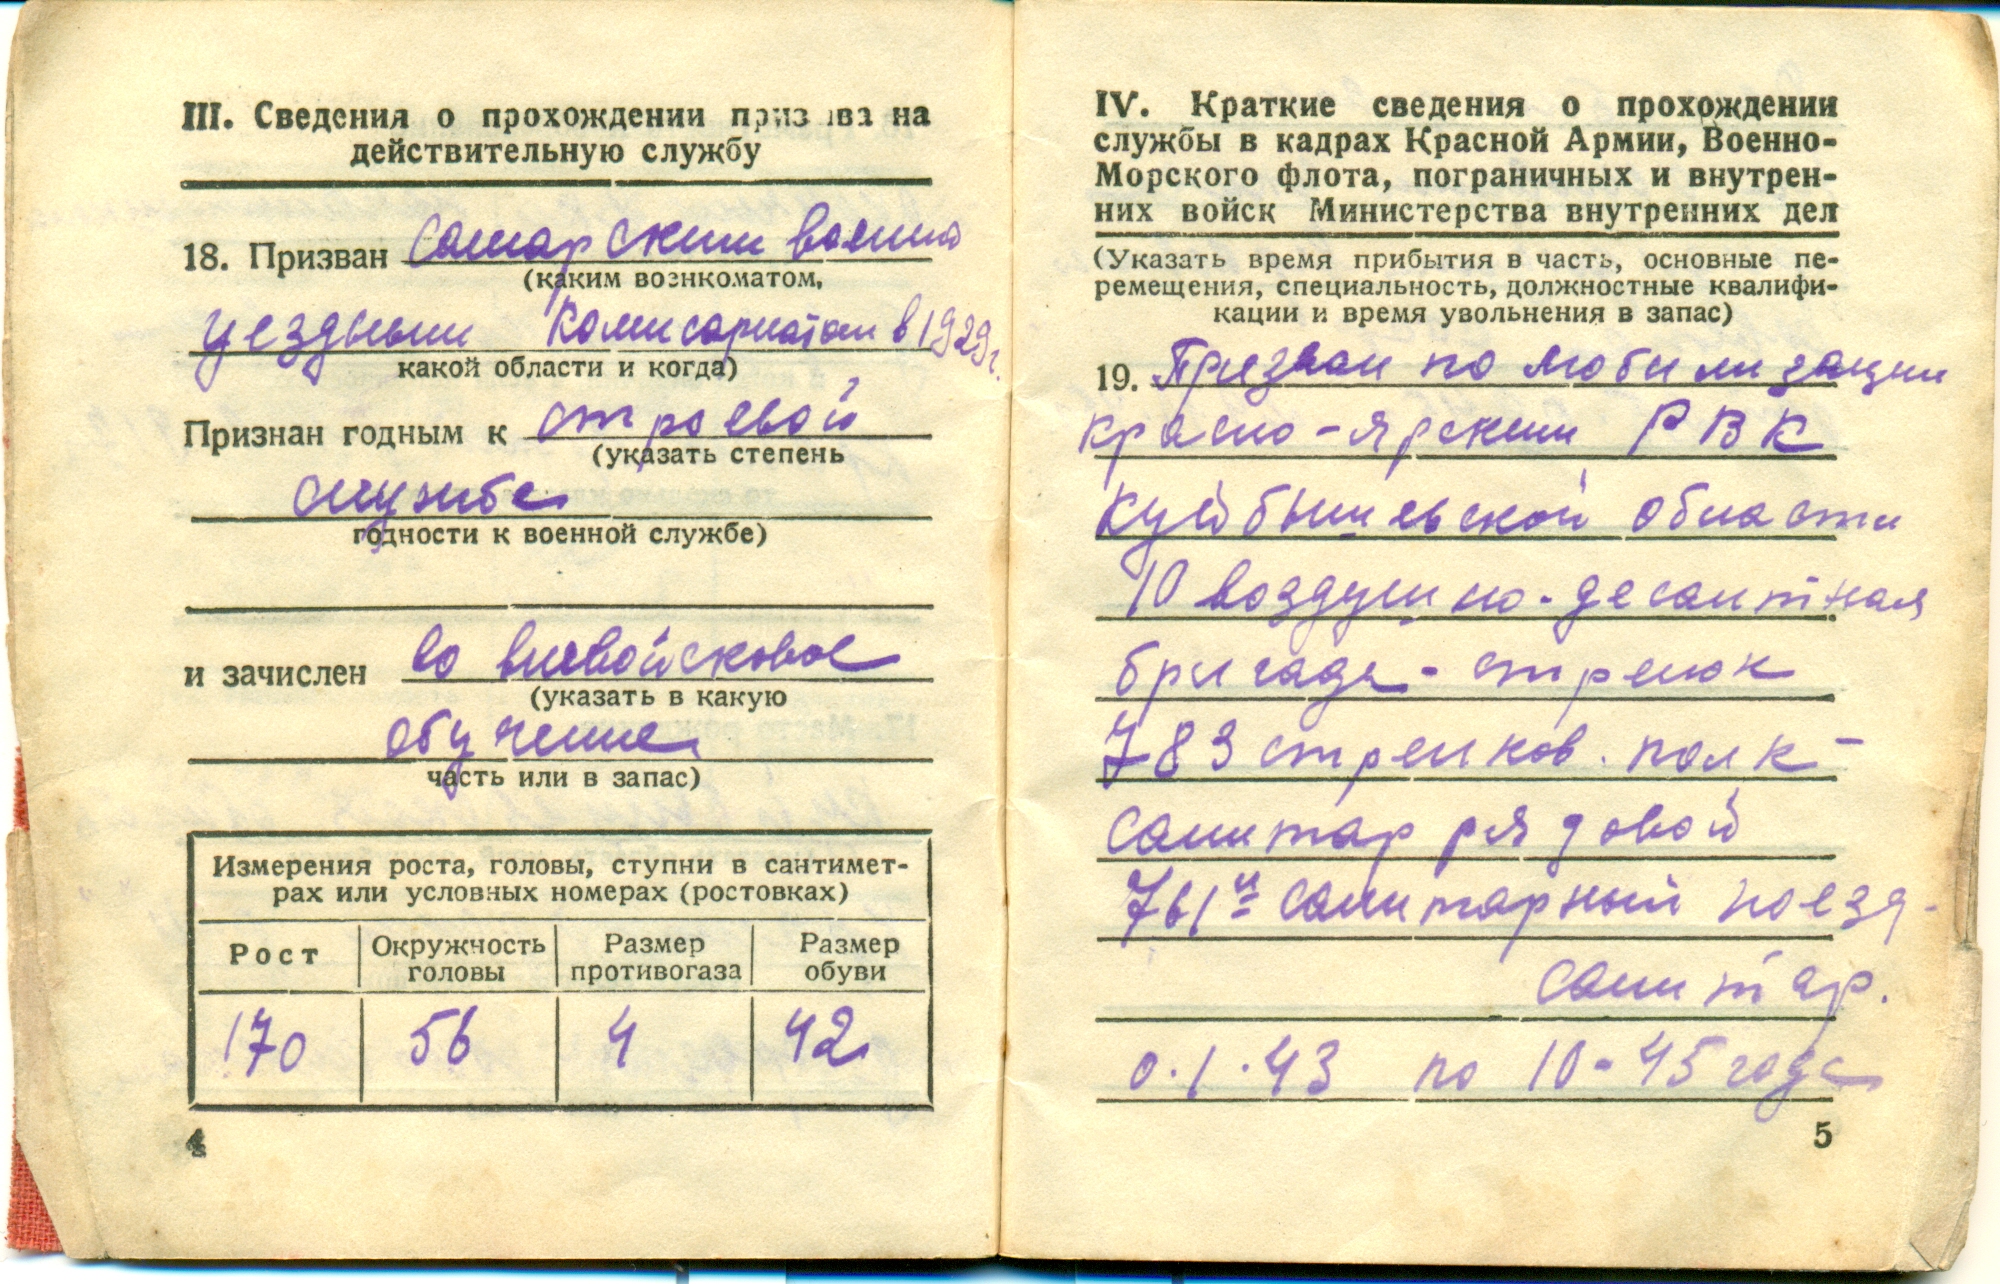 III. Сведения о прохождении призыва на
действительную службу
18. Призван Самарским военно
(каким военкоматом,
уездным Комисариатом в 1929 г.
какой области и когда)
Признан годным к строевой
(указать степень
службе
годности к военной службе)
и зачислен во вневойсковое
(указать в какую
обучение
часть или в запас)
Измерения роста, головы, ступни в сантимет-
рах или условных номерах (ростовках)
Рост Окружность головы Размер противогаза Размер обуви
170 56 4 42
4
IV. Краткие сведения о прохождении
службы в кадрах Красной Армии, Военно-
Морского флота, пограничных и внутрен-
них войск Министерства внутренних дел
(Указать время прибытия в часть, основные пе-
ремещения, специальность, должностные квалифи-
кации и время увольнения в запас)
19. Призван по мобилизации
красно-ярским РВК
Куйбышевской области
10 воздушно-десантная
бригада - стрелок
783 стрелков. полк -
санитар рядовой
761й санитарный поезд-
санитар.
0.1.43 по 10-45 года
5